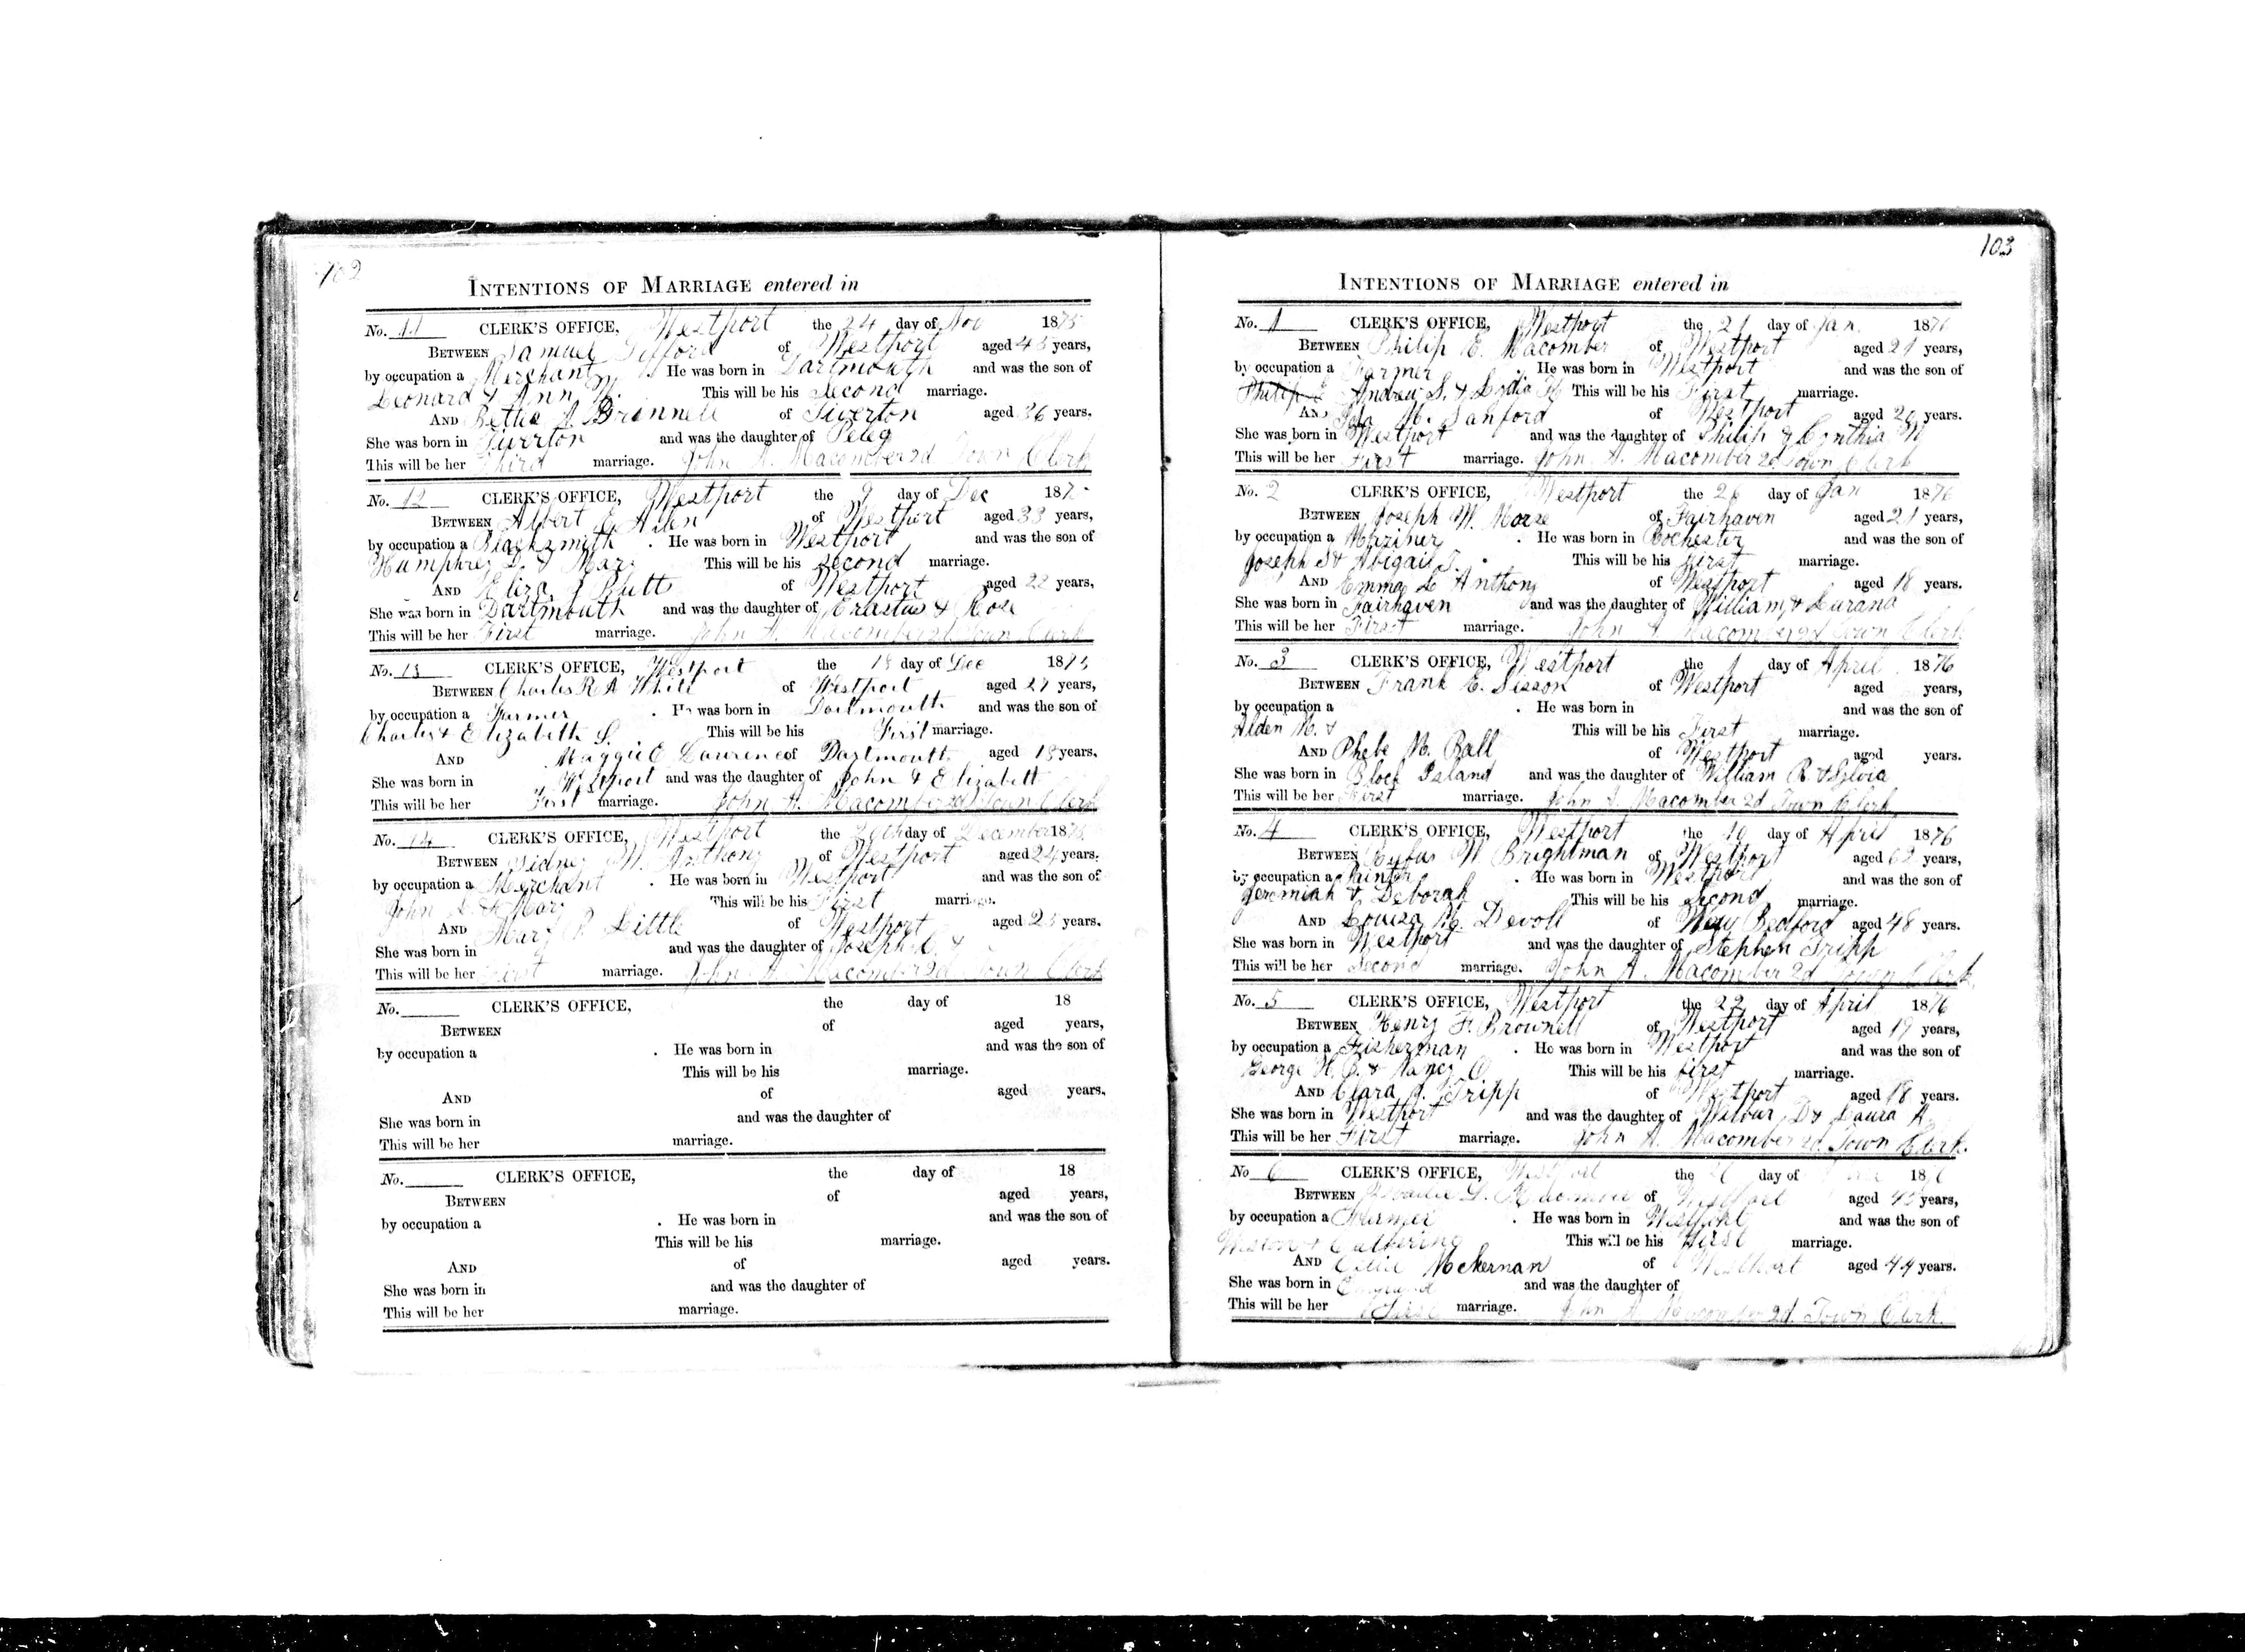 102
INTENTIONS OF MARRIAGE entered in
No. 11 CLERK'S OFFICE, Westport the 24 day of Nov 1875
BETWEEN Samuel Gifford of Westport aged 43 years,
by occupation a Merchant . He was born in Dartmouth and was the son of
Leonard & Ann M. This will be his Second marriage.
AND A. Brinnell of Tiverton aged 36 years.
She was born in Tiverton and was the daughter of Peleg
This will be her Third marriage. John A. Macomber 2d Town Clerk
No. 12 CLERK'S OFFICE, Westport the 9 day of Dec 187
BETWEEN Albert E. Allen of Westport aged 33 years,
by occupation a Blacksmith . He was born in Westport and was the son of
Humphrey D. & Mary This will be his Second marriage.
AND Eliza J Butts of Westport aged 22 years,
She was born in Dartmouth and was the daughter of Erastus & Rose
This will be her First marriage. John A. Macomber 2d Town Clerk
No. 13 CLERK'S OFFICE, Westport the 18 day of Dec 1875
BETWEEN Charles R A White of Westport aged 21 years,
by occupation a Farmer . He was born in Dartmouth and was the son of
Charles & Elizabeth S. This will be his First marriage.
AND Maggie E Laurence of Dartmouth aged 18 years.
She was born in Westport and was the daughter of John & Elizabeth
This will be her First marriage. John A. Macomber 2d Town Clerk
No. 14 CLERK'S OFFICE, Westport the day of December 1875
BETWEEN Sidney W. Anthony of Westport aged 24 years.
by occupation a Merchant . He was born in Westport and was the son of
John & Mary This will be his First marriage.
AND Mary P. Little of Westport aged 23 years.
She was born in and was the daughter of Joseph &
This will be her First marriage. John A. Macomber 2d Town Clerk
No. CLERK'S OFFICE, the day of 18
BETWEEN of aged years,
by occupation a . He was born in and was the son of
This will be his marriage.
AND of aged years.
She was born in and was the daughter of
This will be her marriage.
No. CLERK'S OFFICE, the day of 18
BETWEEN of aged years,
by occupation a . He was born in and was the son of
This will be his marriage.
AND of aged years.
She was born in and was the daughter of
This will be her marriage.
103
INTENTIONS OF MARRIAGE entered in
No. 1 CLERK'S OFFICE, Westport the 21 day of Jan. 1876
BETWEEN Philip E. Macomber of Westport aged 21 years,
by occupation a Farmer He was born in Westport and was the son of
Philip Andrew S. & Lydia This will be his First marriage.
AND Ida M. Sanford of Westport aged 20 years.
She was born in Westport and was the daughter of Philip & Cynthia M
This will be her First marriage. John A. Macomber 2d Town Clerk
No. 2 CLERK'S OFFICE, Westport the 26 day of Jan 1876
BETWEEN Joseph W. Morse of Fairhaven aged 21 years,
by occupation a Mariner . He was born in Rochester and was the son of
Joseph S & Abigail T. This will be his First marriage.
AND Emma L Anthony of Westport aged 18 years.
She was born in Fairhaven and was the daughter of William & Lurana
This will be her First marriage. John A. Macomber 2d Town Clerk
No. 3 CLERK'S OFFICE, Westport the 1 day of April 1876
BETWEEN Frank E. Sisson of Westport aged years,
by occupation a . He was born in and was the son of
Alden M. & This will be his First marriage.
AND Phebe M. Ball of Westport aged years.
She was born in Block Island and was the daughter of William R. & Sylvia
This will be her First marriage. John A. Macomber 2d Town Clerk
No. 4 CLERK'S OFFICE, Westport the 10 day of April 1876
BETWEEN Rufus W Brightman of Westport aged 62 years,
by occupation a Painter . He was born in Westport and was the son of
Jeremiah & Deborah This will be his Second marriage.
AND Louisa Devoll of New Bedford aged 48 years.
She was born in Westport and was the daughter of Stephen Tripp
This will be her Second marriage. John A. Macomber 2d Town Clerk
No. 5 CLERK'S OFFICE, Westport the 22 day of April 1876
BETWEEN Henry F. Brownell of Westport aged 19 years,
by occupation a Fisherman . He was born in Westport and was the son of
George H. & Nancy O This will be his first marriage.
AND Clara J. Tripp of Westport aged 18 years.
She was born in Westport and was the daughter of Wilbur D & Laura A.
This will be her First marriage. John A. Macomber 2d. Town Clerk.
No 6 CLERK'S OFFICE, Westport the day of 1876
BETWEEN of Westport aged 45 years,
by occupation a Farmer . He was born in Westport and was the son of
Weston & Catherine This will be his First marriage.
AND McKernan of Westport aged 44 years.
She was born in England and was the daughter of
This will be her First marriage. John A Macomber 2d. Town Clerk.